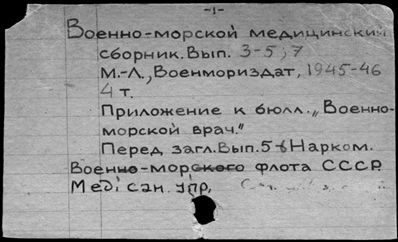 -1-
Военно-морской медицинский
сборник. Вып. 3-5; 7
М.-Л., Военмориздат, 1945-46
4 т.
Приложение к бюлл. „Военно-
морской врач."
Перед загл. Вып. 5-8 Нарком.
Военно-морского флота СССР.
Medi сан. упр.